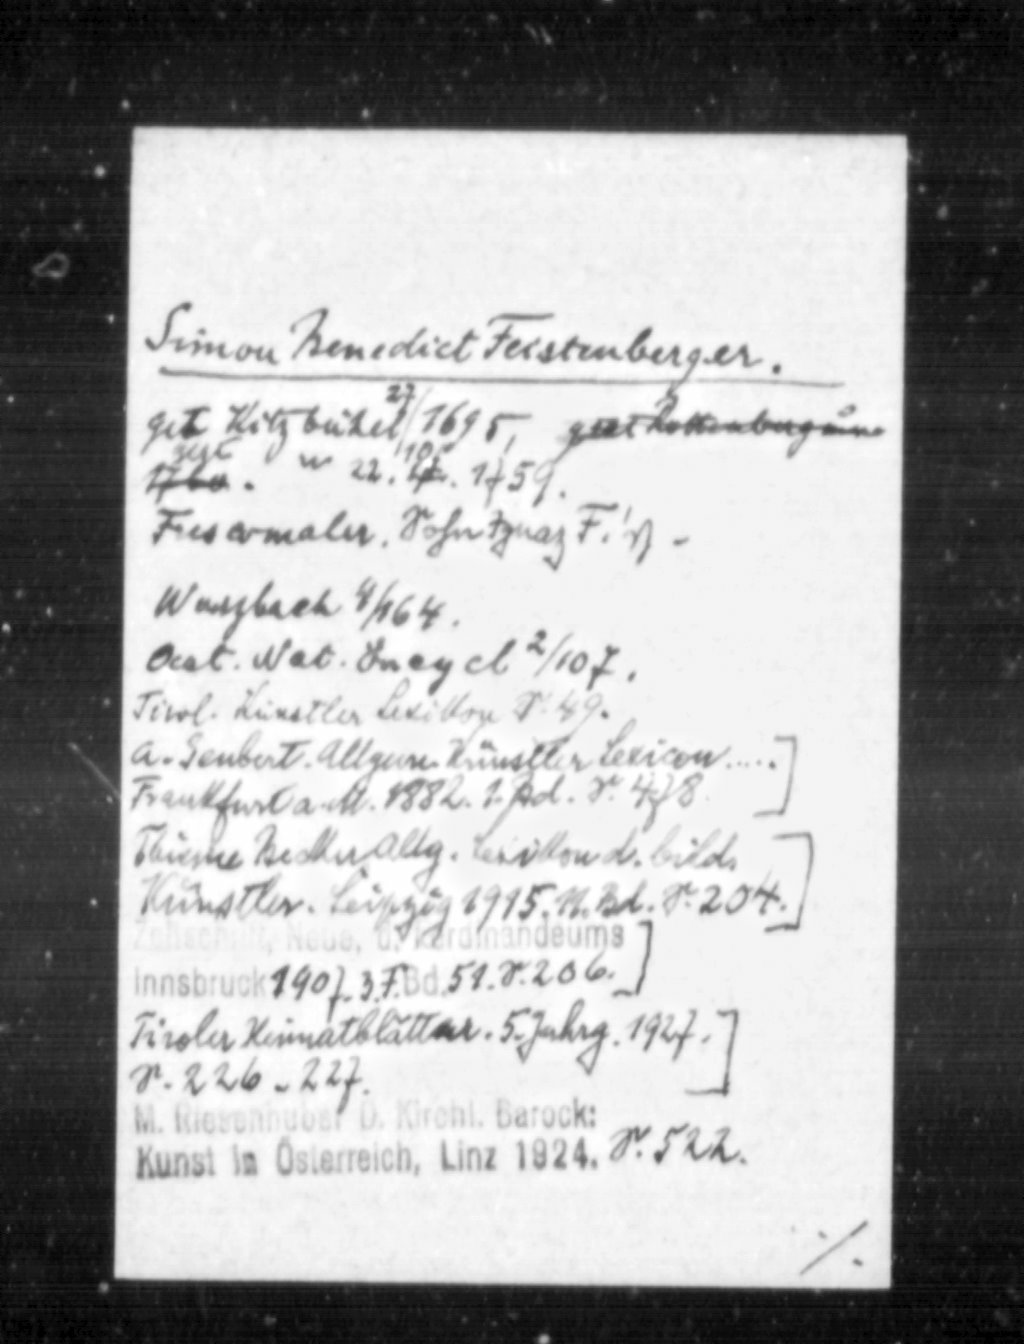 Simon Benedict Feistenberger.
geb Kitzbühel 27/ 1695,
gest
1760. 22. 10. 1759.
Frescomaler. Sohn Ignaz F.'s -
Wurzbach 4/164.
Oest. Nat. Encycl 2/107.
Tirol. Künstler Lexikon S. 49.
A. Seubert. Allgem. Künstler Lexicon.....
Frankfurt a. M. 1882. 1. Bd. S. 478.
Thieme Becker Allg. Lexikon d. bild.
Künstler. Leipzig 1915. 11. Bd. S. 204.
Zeitschrift, Neue, d. Ferdinandeums
Innsbruck 1907. 3.F. Bd. 51. S. 206.
Tiroler Heimatblätter. 5. Jahrg. 1927.
S. 226 - 227.
M. Riesenhuber D. Kirchl. Barock:
Kunst in Österreich, Linz 1924. S. 522.
./.